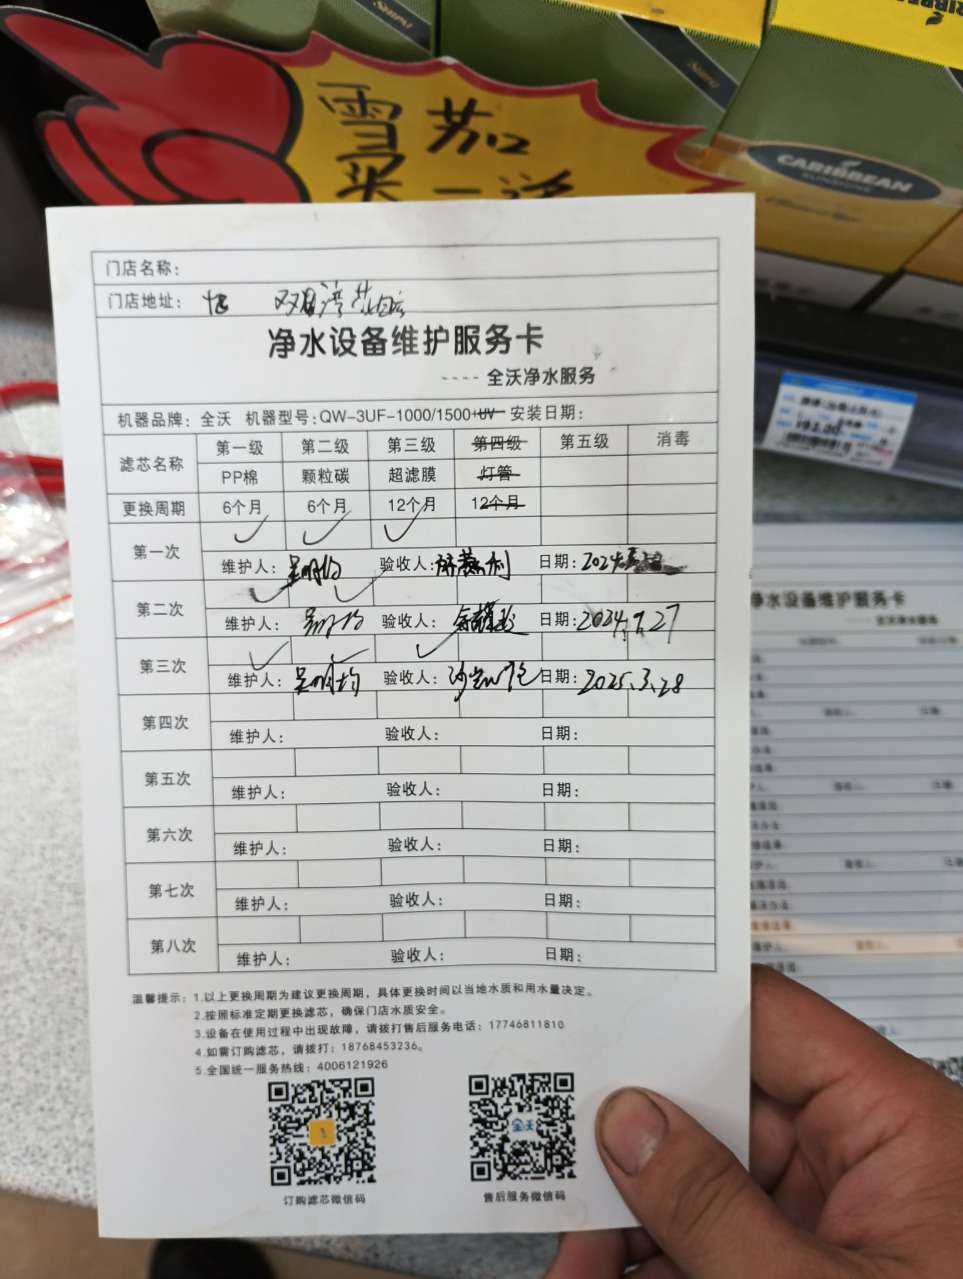 雪茄
买一送
CARIBBEAN
门店名称：
门店地址： 双月湾
净水设备维护服务卡
---- 全沃净水服务
机器品牌：全沃 机器型号：QW-3UF-1000/1500+UV 安装日期：
滤芯名称 第一级 第二级 第三级 第四级 第五级 消毒
PP棉 颗粒碳 超滤膜 灯管
更换周期 6个月 6个月 12个月 12个月
第一次
维护人：吴明均 验收人： 日期：2024
第二次
维护人：吴明均 验收人： 日期：2024.9.27
第三次
维护人：吴明均 验收人： 日期：2025.3.28
第四次
维护人： 验收人： 日期：
第五次
维护人： 验收人： 日期：
第六次
维护人： 验收人： 日期：
第七次
维护人： 验收人： 日期：
第八次
维护人： 验收人： 日期：
温馨提示：1.以上更换周期为建议更换周期，具体更换时间以当地水质和用水量决定。
2.按照标准定期更换滤芯，确保门店水质安全。
3.设备在使用过程中出现故障，请拨打售后服务电话：17746811810
4.如需订购滤芯，请拨打：18768453236。
5.全国统一服务热线：4006121926
全沃
订购滤芯微信码
售后服务微信码
净水设备维护服务卡